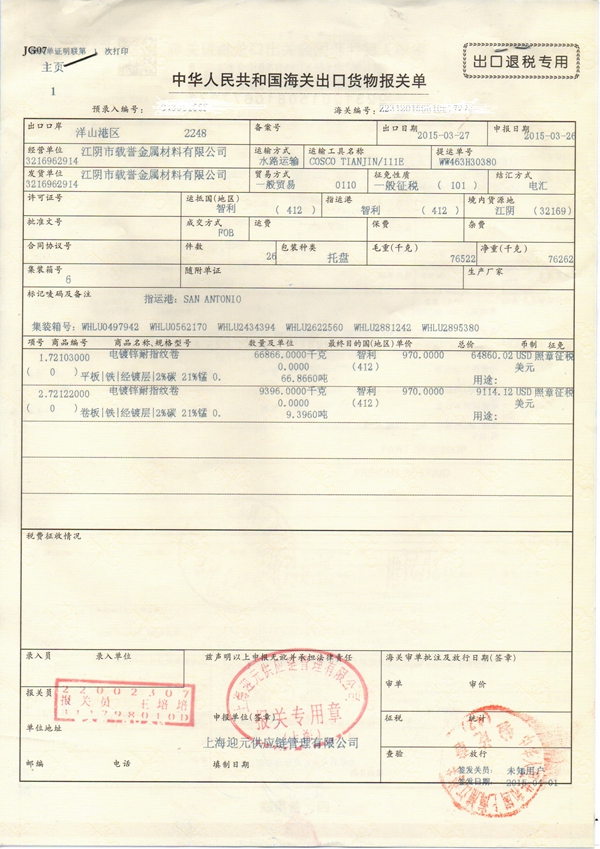 JG07 单证明联第 1 次打印
主页
1
出口退税专用
中华人民共和国海关出口货物报关单
预录入编号: 海关编号:
出口口岸 洋山港区 2248 备案号 出口日期 2015-03-27 申报日期 2015-03-26
经营单位 江阴市载誉金属材料有限公司 3216962914 运输方式 水路运输 运输工具名称 COSCO TIANJIN/111E 提运单号 WW463H30380
发货单位 江阴市载誉金属材料有限公司 3216962914 贸易方式 一般贸易 0110 征免性质 一般征税 (101) 结汇方式 电汇
许可证号 运抵国(地区) 智利 (412) 指运港 智利 (412) 境内货源地 江阴 (32169)
批准文号 成交方式 FOB 运费 保费 杂费
合同协议号 件数 26 包装种类 托盘 毛重(千克) 76522 净重(千克) 76262
集装箱号 6 随附单证 生产厂家
标记唛码及备注
指运港: SAN ANTONIO
集装箱号: WHLU0497942 WHLU0562170 WHLU2434394 WHLU2622560 WHLU2881242 WHLU2895380
项号 商品编号 商品名称、规格型号 数量及单位 最终目的国(地区) 单价 总价 币制 征免
1.72103000 电镀锌耐指纹卷 66866.0000千克 智利 970.0000 64860.02 USD 照章征税
0.0000 (412) 美元
( 0 ) 平板|铁|经镀层|2%碳 21%锰 0. 66.8660吨 用途:
2.72122000 电镀锌耐指纹卷 9396.0000千克 智利 970.0000 9114.12 USD 照章征税
0.0000 (412) 美元
( 0 ) 卷板|铁|经镀层|2%碳 21%锰 0. 9.3960吨 用途:
税费征收情况
录入员 录入单位 兹声明以上申报无讹并承担法律责任 海关审单批注及放行日期(签章)
审单 审价
报关员
22002307
报关员 王培培
上海迎元供应链管理有限公司
报关专用章
申报单位(签章)
征税 统计
单位地址
上海迎元供应链管理有限公司
查验 放行
邮编 电话 填制日期
签发关员: 未知用户
签发日期: 2015-04-01